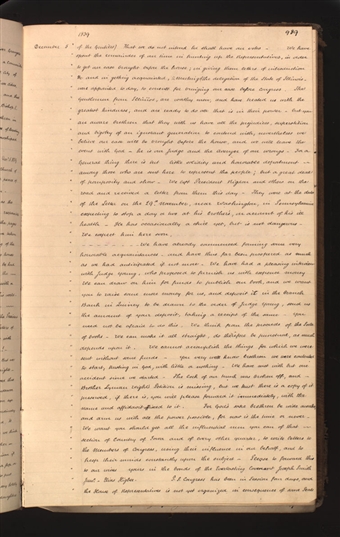 1839 989
December 5 of the United) That we do not intend he shall have our votes — We have
spent the remainder of our time in hunting up the Representatives, in order
to get our case brought before the house; in giving them letters of introduction
&c and in getting acquainted, A meeting of the delegation of the State of Illinois
was appointed to day, to consult for bringing our case before Congress. The
Gentlemen from Illinois, are worthy men, and have treated us with the
greatest kindness, and are ready to do all that is in their power — but you
are aware brethren that they with us have all the prejudices, superstition
and bigotry of an ignorant generation to contend with, nevertheless we
believe our case will be brought before the house, and we will leave the
event with God — he is our Judge and the Avenger of our wrongs — In a
General thing there is but little solidity and honorable deportment —
among those who are sent here to represent the people; but a great deal
of pomposity and show — We left President Rigdon and others on the
road and received a letter from them this day — They were at the date
of the letter on the 29th November, near Washington, in Pennsylvania
expecting to stop a day or two at his brother's, on account of his ill
health — He has occasionally a chill yet, but is not dangerous —
We expect him here soon.
We have already commenced forming some very
honorable acquaintances and have thus far been prospered as much
as we had anticipated if not more. We have had a pleasing interview
with Judge Young, who proposed to furnish us with expense money
We can draw on him for funds to publish our book, and we want
you to raise some more money for us, and deposit it in the Branch
Bank in Quincy to be drawn to the order of Judge Young, send us
the amount of your deposit, taking a receipt of the same — You
need not be afraid to do this — We think from the proceeds of the sale
of books — We can make it all straight, do therefore be punctual, as much
depends upon it. We cannot accomplish the things for which we were
sent without some funds — You very well know brethren we were contented
to start, trusting in God, with little or nothing — We have met with but one
accident since we started. The lock of our trunk was broken off, and
Brother Lyman Wight's Petition is missing, but we trust there is a copy of it
preserved, if there is, you will please forward it immediately, with the
name and affidavit affixed to it. For God's sake brethren be wide awake
and arm us with all the power possible, for now is the time or never —
We want you should get all the influential men you can of that —
section of Country of Iowa and of every other quarter, to write letters to
the Members of Congress, using their influence in our behalf, and to
keep their minds constantly upon the subject — Please to forward this
to our wives yours in the bonds of the Everlasting Covenant Joseph Smith
Junr — Elias Higbee. P.S. Congress has been in Session four days, and
the House of Representatives is not yet organized, in consequence of some seats